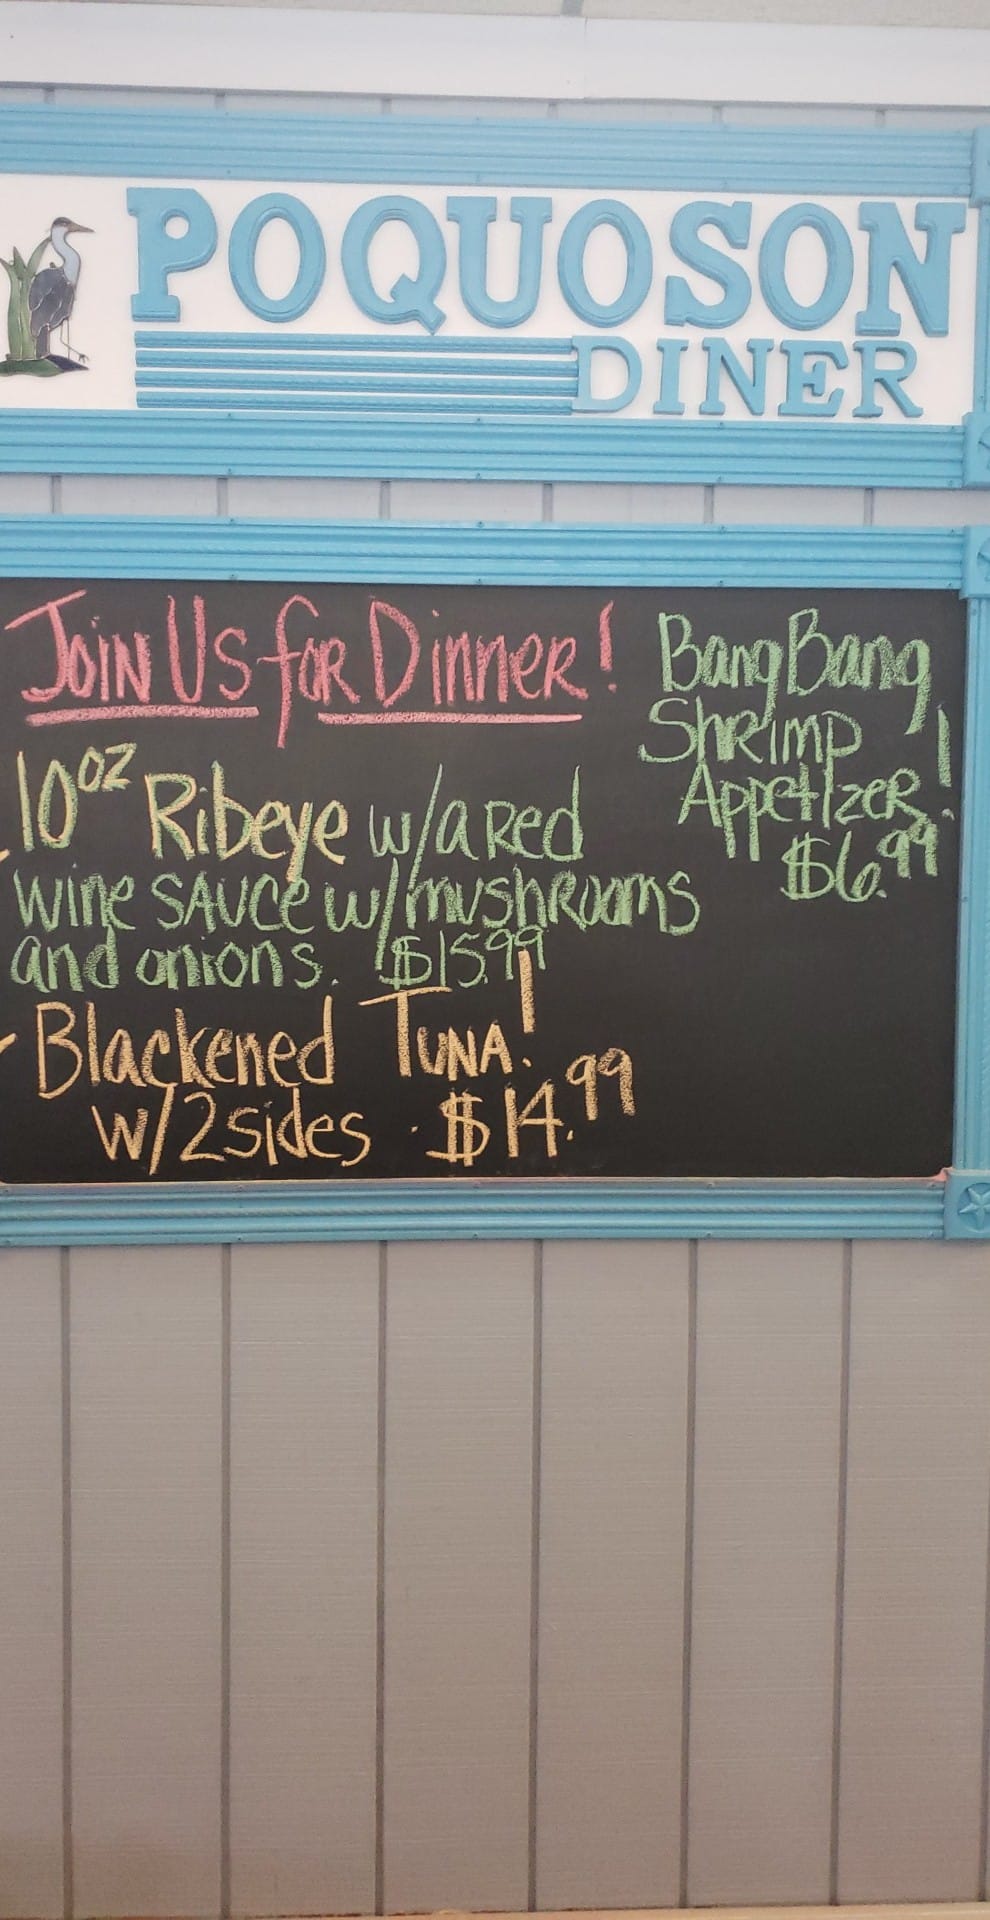 POQUOSON
DINER
Join Us for Dinner!
10oz Ribeye w/a Red
wine sauce w/mushrooms
and onions. $15.99
Blackened Tuna!
w/2 sides $14.99
Bang Bang
Shrimp
Appetizer!
$6.99